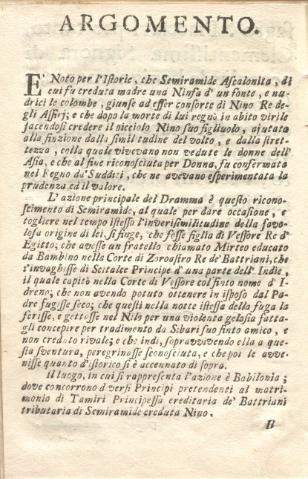 ARGOMENTO.
E' Noto per l'Istorie, che Semiramide Ascalonita, di
cui fu creduta madre una Ninfa d'un fonte, e nu-
drici le colombe, giunse ad esser consorte di Nino Re de-
gli Assirj; e che dopo la morte di lui regnò in abito virile
facendosi credere il picciolo Nino suo figliuolo, ajutata
alla finzione dalla similitudine del volto, e dalla stret-
tezza, colla quale vivevano non vedute le donne dell'
Asia, e che al fine riconosciuta per Donna, fu confermata
nel Regno da' Sudditi, che ne avevano esperimentata la
prudenza ed il valore.
L'azione principale del Dramma è questo ricono-
scimento di Semiramide, al quale per dare occasione, e
togliere nel tempo istesso l'inverisimilitudine della favo-
losa origine di lei, si finge, che fosse figlia di Vessore Re d'
Egitto; che avesse un fratello chiamato Mirteo educato
da Bambino nella Corte di Zoroastro Re de' Battriani, che
s'invaghisse di Scitalce Principe d'una parte dell'Indie,
il quale capitò nella Corte di Vessore col finto nome d'I-
dreno; che non avendo potuto ottenere in isposo dal Pa-
dre fugisse seco; che questi nella notte istessa della fuga la
ferisse, e gettasse nel Nilo per una violenta gelosia fatta-
gli concepire per tradimento da Sibari suo finto amico, e
non creduto rivale; e che indi, sopravvivendo ella a que-
sta sventura, peregrinasse sconosciuta, e che poi le avve-
nisse quanto d'istorico si è accennato di sopra.
Il luogo, in cui si rappresenta l'azione è Babilonia;
dove concorrono diversi Principi pretendenti al matri-
monio di Tamiri Principessa ereditaria de' Battriani
tributaria di Semiramide creduta Nino.
B